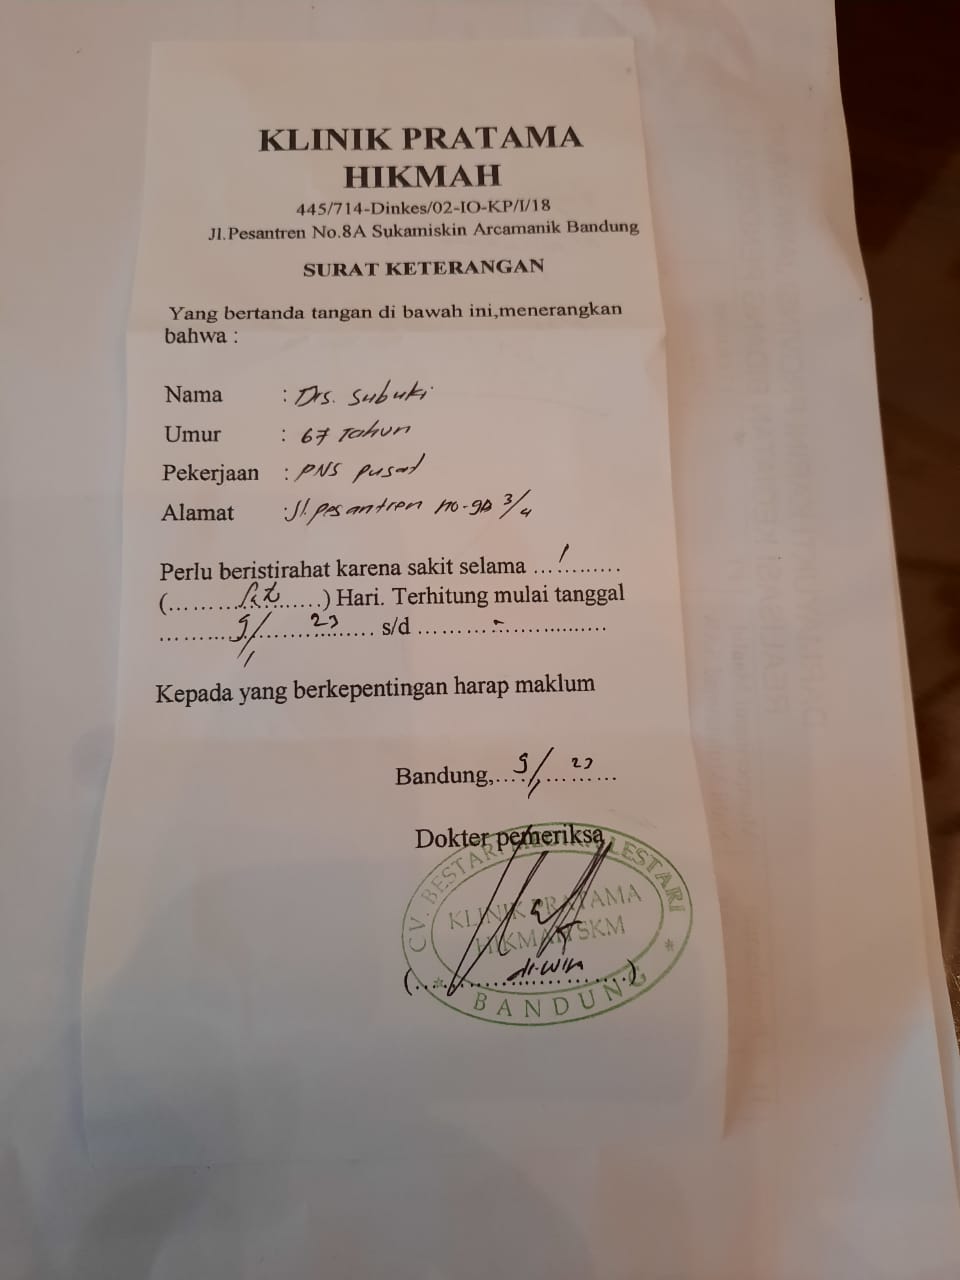 KLINIK PRATAMA
HIKMAH
445/714-Dinkes/02-IO-KP/I/18
Jl.Pesantren No.8A Sukamiskin Arcamanik Bandung
SURAT KETERANGAN
Yang bertanda tangan di bawah ini,menerangkan
bahwa :
Nama : Drs. Subuki
Umur : 67 Tahun
Pekerjaan : PNS pusat
Alamat : Jl. pesantren no.
Perlu beristirahat karena sakit selama ...1.........
(...............) Hari. Terhitung mulai tanggal
......... 9/1 ... 23 ......... s/d ......... - ............
Kepada yang berkepentingan harap maklum
Bandung,.... 9/1 ... 23 ...
Dokter pemeriksa
CV. BESTARI LESTARI
KLINIK PRATAMA
HIKMAH SKM
(..... dr. Win .....)
* BANDUNG *